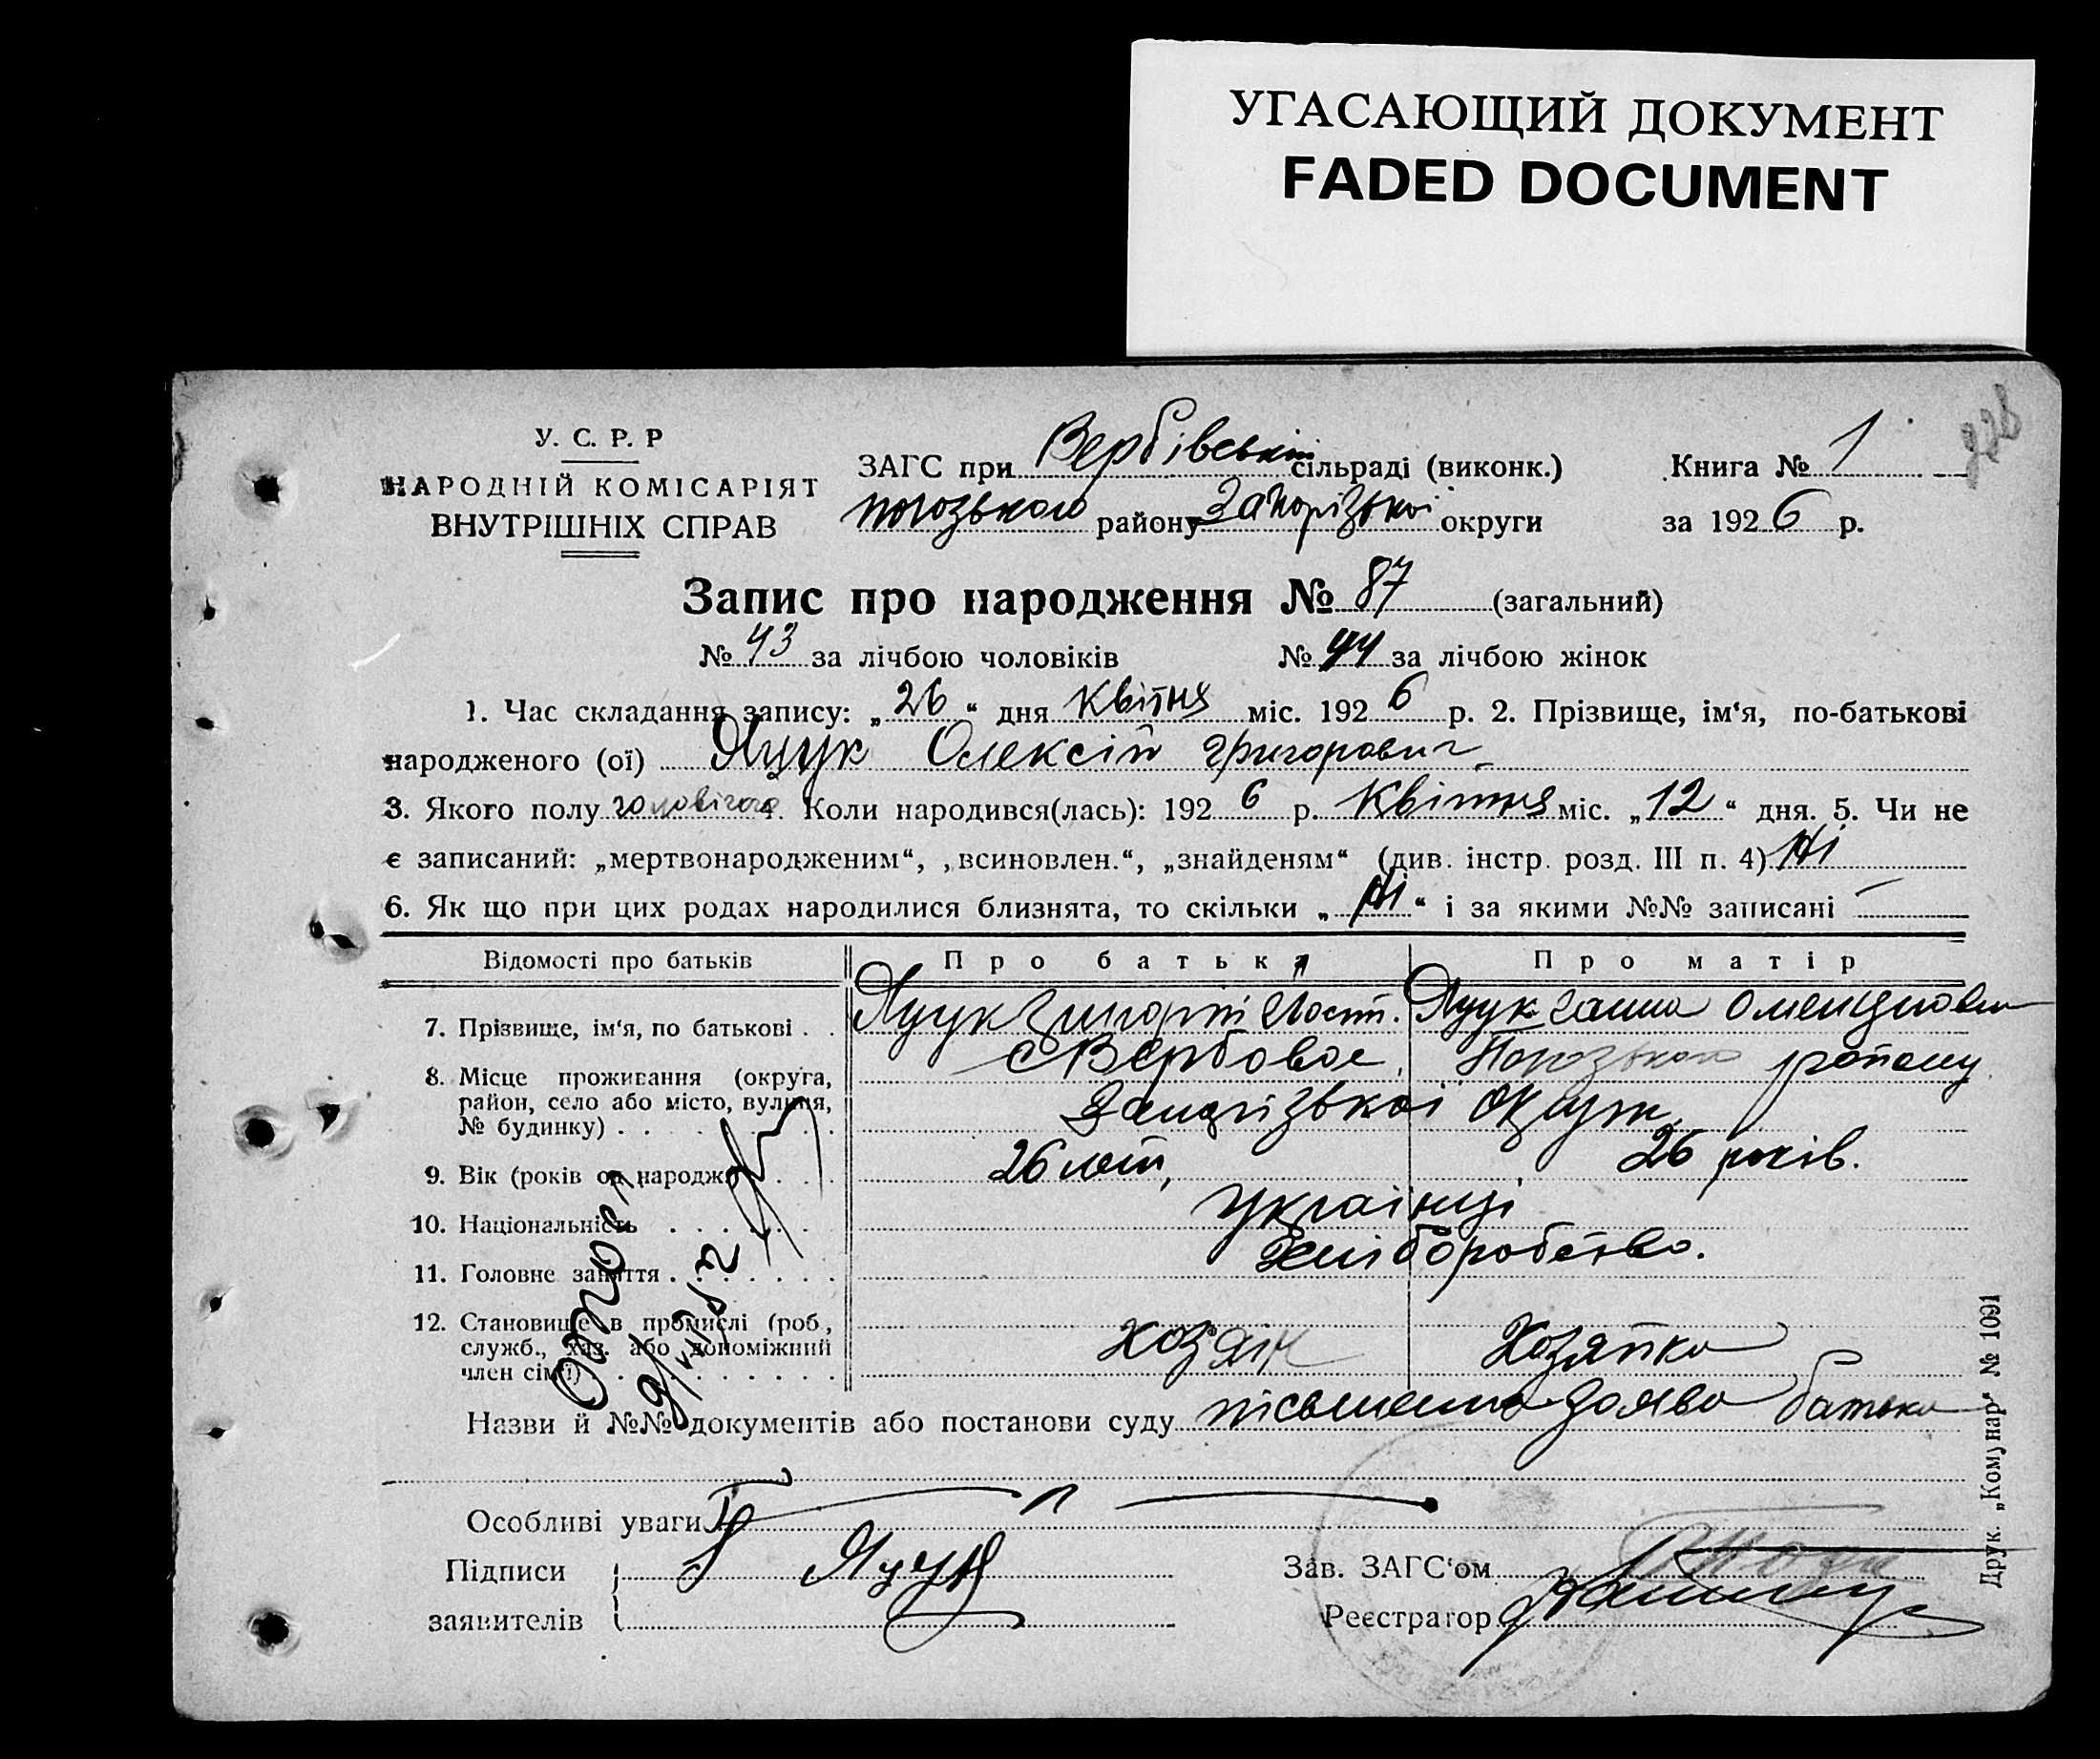 УГАСАЮЩИЙ ДОКУМЕНТ
FADED DOCUMENT
У. С. Р. Р
НАРОДНІЙ КОМІСАРІЯТ
ВНУТРІШНІХ СПРАВ
ЗАГС при Вербівській сільраді (виконк.)
пологзького району Запорізької округи
Книга № 1
за 1926 р.
Запис про народження № 87 (загальний)
№ 43 за лічбою чоловіків № 44 за лічбою жінок
1. Час складання запису: „26“ дня Квітня міс. 1926 р. 2. Прізвище, ім‘я, по-батькові
народженого (ої) Яцук Олексій Григорович
3. Якого полу чоловічого 4. Коли народився(лась): 1926 р. Квітня міс. „12“ дня. 5. Чи не
є записаний: „мертвонародженим“, „всиновлен.“, „знайденям“ (див. інстр. розд. III п. 4) Ні
6. Як що при цих родах народилися близнята, то скільки „Ні“ і за якими №№ записані —
Відомості про батьків Про батька Про матір
7. Прізвище, ім‘я, по батькові . . Яцук Григорій Яцук Ганна
8. Місце проживання (округа,
район, село або місто, вулиця,
№ будинку) . .
с Вербовое, району
Запорізької Округи
9. Вік (років од народж.) . . . 26 лет, 26 років.
10. Національність . . . . . Українці
11. Головне заняття . . . . . . Хліборобство.
12. Становище в промислі (роб.,
служб., хаз. або допоміжний
член сім‘ї) . . . . . . . . .
Хозяїн Хозяйка
Назви й №№ документів або постанови суду письменна заява батька
Особливі уваги
Підписи
заявителів
Яцук
Зав. ЗАГС‘ом
Реєстратор
Друк. „Комунар“ № 1091